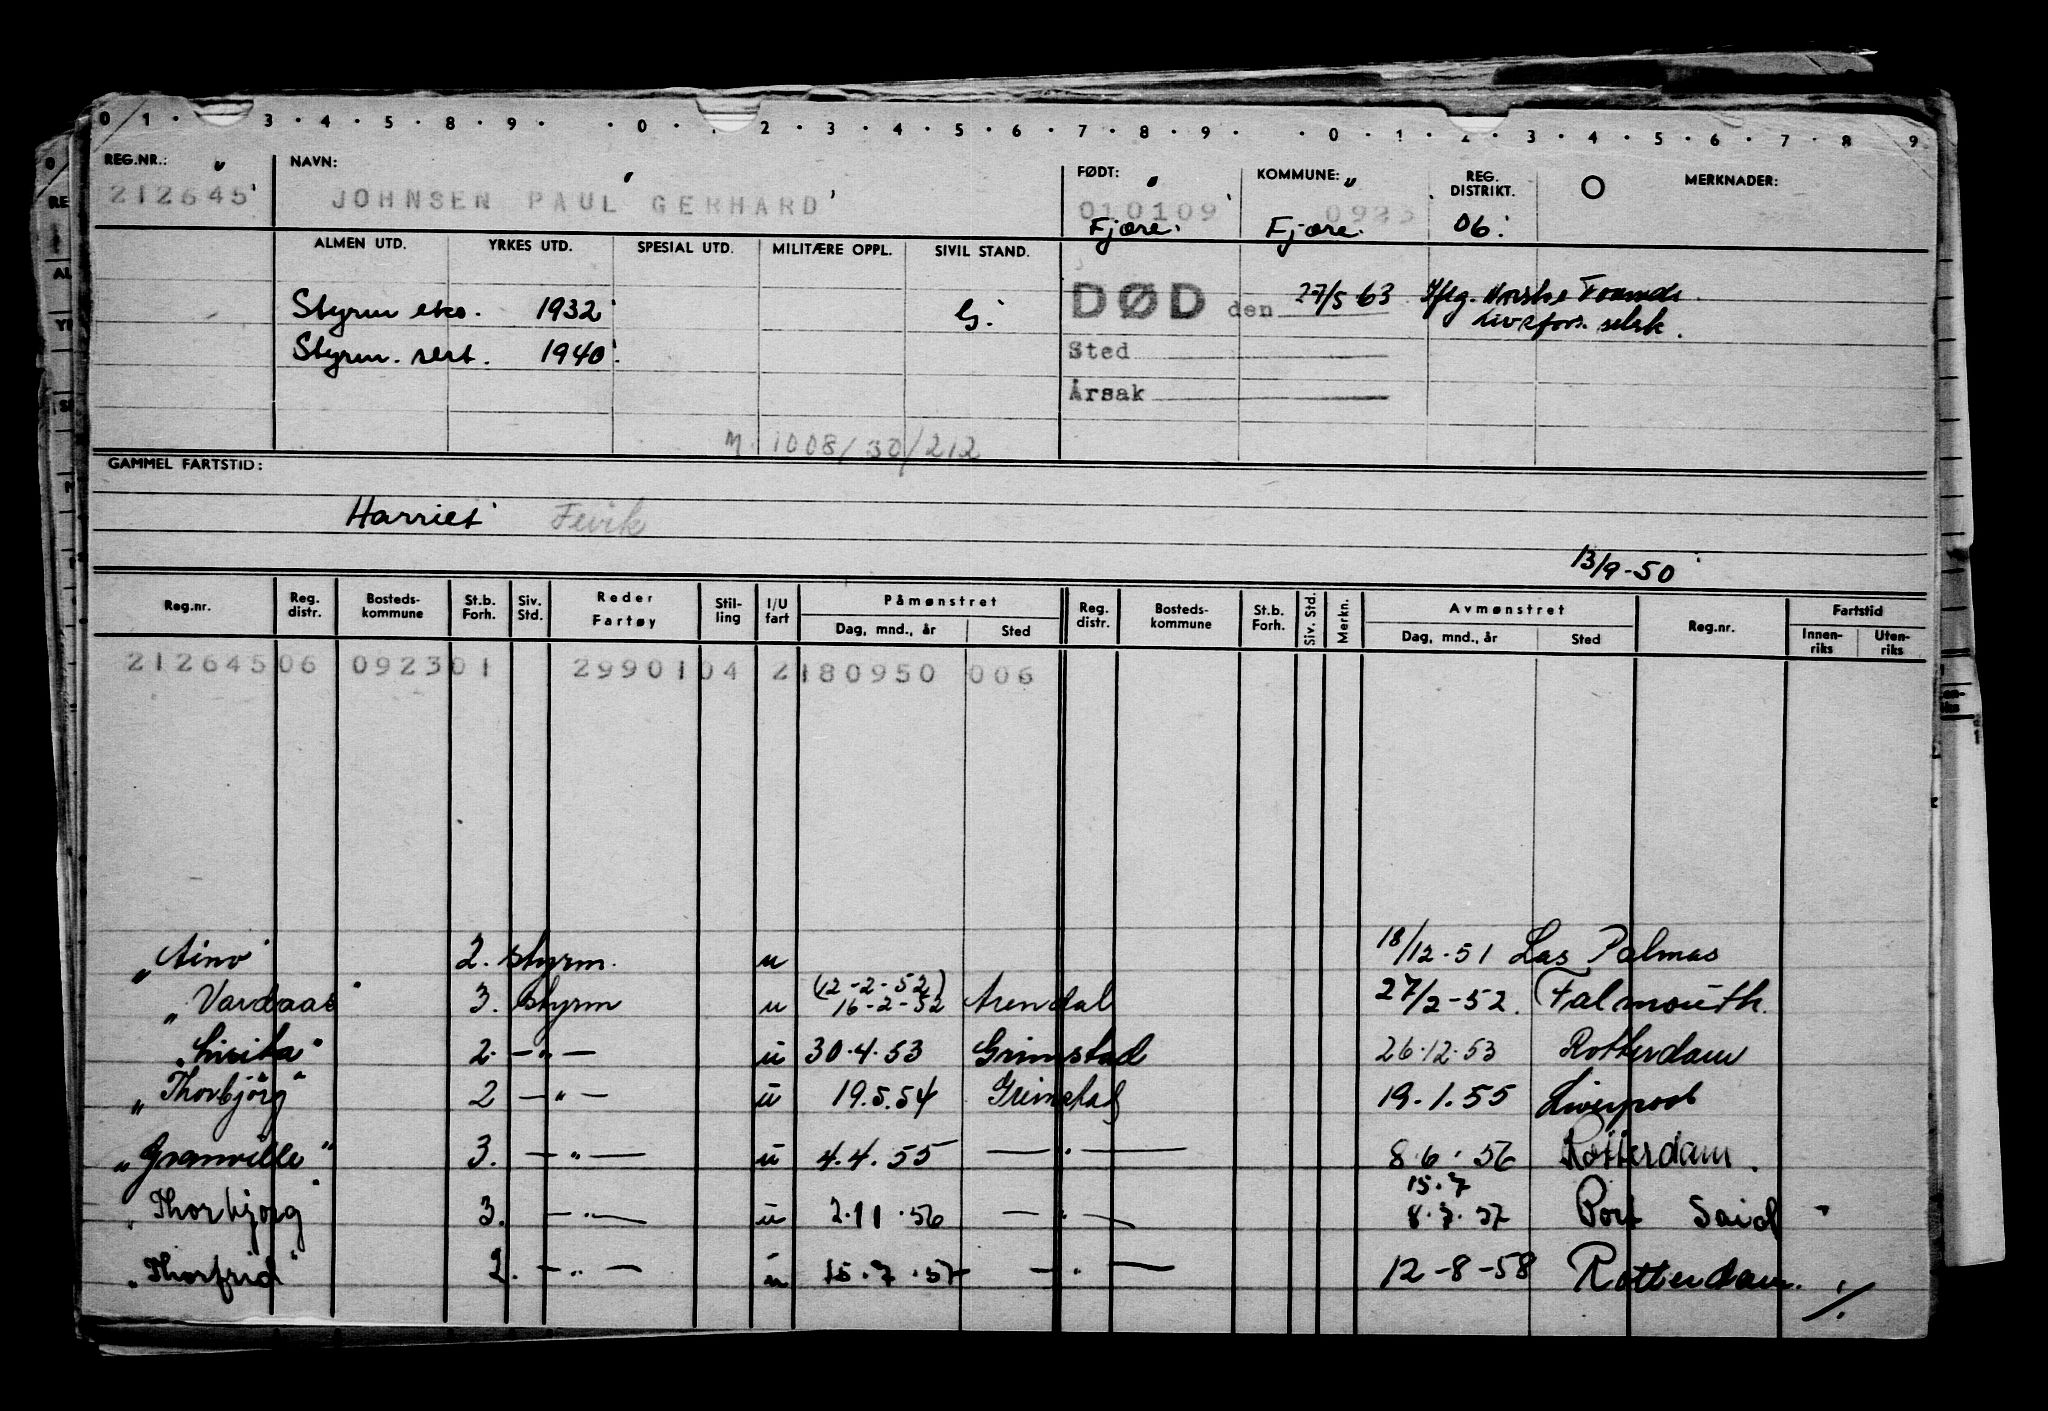 0 1 · 3 · 4 · 5 · 8 · 9 · · 0 · · 2 · 3 · 4 · 5 · 6 · 7 · 8 · 9 · · 0 · 1 · 2 · 3 · 4 · 5 · 6 · 7 · 8 9
REG.NR.: NAVN: FØDT: KOMMUNE: REG. DISTRIKT. MERKNADER:
212645 JOHNSEN PAUL GERHARD 010109 0923
Fjære. Fjære. 06.
ALMEN UTD. YRKES UTD. SPESIAL UTD. MILITÆRE OPPL. SIVIL STAND.
Styrm eks. 1932 G. DØD den 27/5 63 Iflg. Norske Folk
Livsfors. selsk.
Styrm. sert. 1940. Sted
Årsak
M. 1008/30/212
GAMMEL FARTSTID:
Harriet Fevik
13/9-50
Reg.nr. Reg. distr. Bosteds-kommune St.b. Forh. Siv. Std. Reder Fartøy Stil-ling I/U fart Påmønstret Reg. distr. Bosteds-kommune St.b. Forh. Siv. Std. Merkn. Avmønstret Reg.nr. Fartstid
Dag, mnd., år Sted Dag, mnd., år Sted Innen-riks Uten-riks
212645 06 0923 01 29901 04 2 180950 006
"Aino" 2. styrm. u 18/12-51 Las Palmas
(12-2-52)
"Vardaas" 3. styrm u 16-2-52 Arendal 27/2-52. Falmouth.
2. — " — u 30.4.53 Grimstad 26.12.53 Rotterdam
"Thorbjörg" 2 — " — u 19.5.54 Grimstad 19.1.55 Liverpool
"Granville" 3. — " — u 4.4.55 — " — 8.6.56 Rotterdam.
15.7
"Thorbjørg" 3. — " — u 2.11.56 — " — 8.7.57 Port Said
"Thorfrid" 2. — " — u 15.7.57 — " — 12-8-58 Rotterdam. ·/·